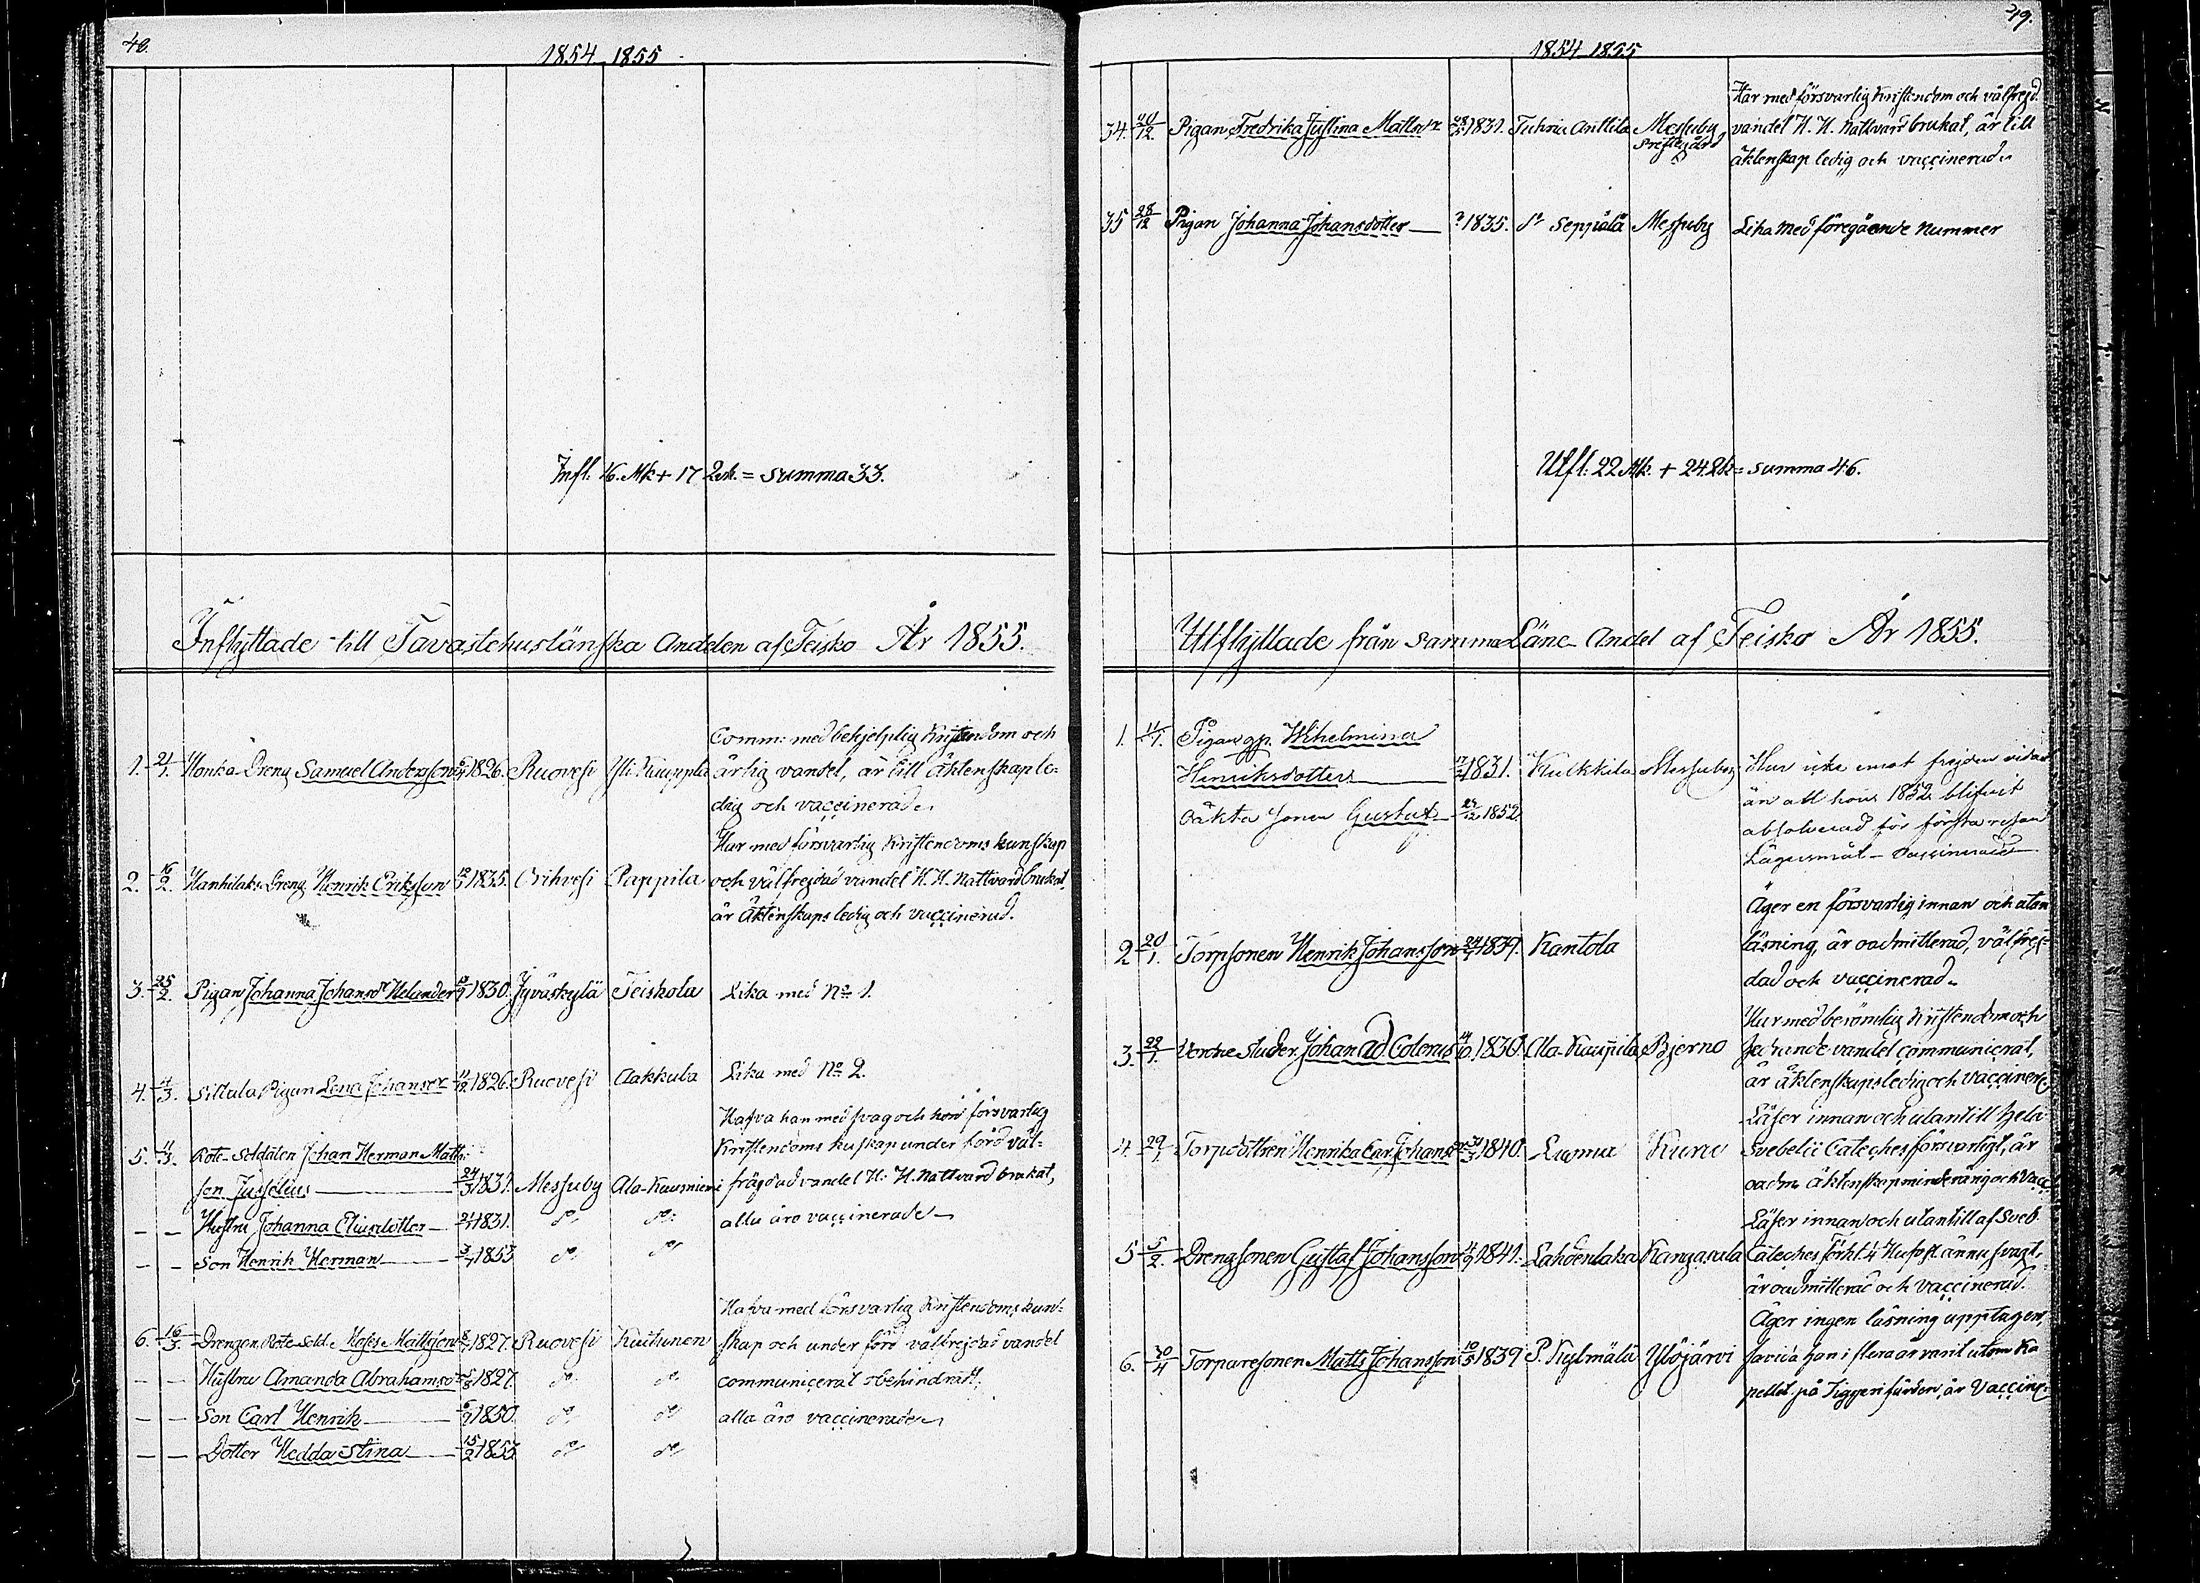 48.
1854 1855
Infl. 16. Mk + 17 Qvk. = summa 33.
Inflyttade till Tavastehuslänska Andelen af Teisko År 1855.
Comm: med behjelplig Kristendom och
1. 21/1. Honka Dreng Samuel Andersson 1826. Ruovesi Yli Kauppila ärlig vandel, är till Äktenskap le-
dig och vaccinerad.
Har med försvarlig Kristendoms kunskap
2. 16/2. Hanhilaks Dreng Henrik Eriksson 1835. Orihvesi Pappila och välfrejdad vandel H. H. Nattvard brukat
är Äktenskaps ledig och vaccinerad.
3. 25/2. Pigan Johanna Johansdr Helander 1830. Jyväskylä Teiskola Lika med No 1.
4. 4/3. Sillula Pigan Lena Johansdr 1826. Ruovesi Aakkula Lika med No 2.
Hafva han med svag och hon försvarlig
5. 11/3. Rote-Soldaten Johan Herman Matts- Kristendoms kuskap under förd väl-
son Juselius 24/3 1831. Messuby Ala-Kausniemi frägdad vandel H. H. Nattvard brukat,
— — Hustru Johanna Eliaedotter 1831. do do alla äro vaccinerade
— — Son Henrik Herman 1853 do do
Hafva med försvarlig Kristendoms kun-
6. 16/3. Drengen Rote Sold. Mattsson 1827. Ruovesi Kuitunen skap och under förd välfrejdad vandel
— — Hustru Amanda Abrahamsdr 1827 do do communicerat obehindradt,
— — Son Carl Henrik 1850 do do alla äro vaccinerade
— — Dotter Hedda Stina 15/2 1853 do do
49.
1854 1855
Har med försvarlig Kristendom och välfrejd.
34. 20/12. Pigan Fredrika Justina Mattsdr 28/5 1831. Tuhria Anttila Messuby vandel H. H. Nattvard brukat, är till
Prestegård äktenskap ledig och vaccinerad.
35 28/12 Pigan Johanna Johansdotter ? 1835. Seppälä Messuby Lika med föregående Nummer
Utfl: 22 Mk. + 24 Qk = summa 46.
Utflyttade från samma Läns Andel af Teisko År 1855.
1. 11/1. Pigan Wilhelmina
Henriksdotter 1831. Kulkkila Messuby Har icke emot frejden vidare
än att hon 1852 blifvit
oäkta sonen Gustaf 1852 absolverad för första resan
Lägersmål - Vaccinerade
Äger en försvarlig innan och utan
2 20/1. Torpsonen Henrik Johansson 1839. Kantola läsning, är oadmitterad, välfrej-
dad och vaccinerad.
Har med berömlig Kristendom och
3. 22/1. Johan Ad. Colerus 1830. Ala-Kauppila Bjerno vandel communicerat,
är äktenskapsledig och vaccinere
Läser innan och utantill hela
4 29/1. Torpdottren Henrika Johansdr 1840. Luoma Kuru Svebelii Cateches försvarligt, är
oadm. äktenskap minderårig och vacc
Läser innan och utantill af Sveb.
5 5/2. Drengsonen Gustaf Johansson 1841. Lahdenlaka Kangasala Cateches förkl. 4 Hufvst. ännu svagt,
är oadmitterad och vaccinerad.
Äger ingen läsning upptagen,
6. 30/4 Torparesonen Matts Johansson 1839 P. Kylmälä Ylöjärvi han i flera år varit utom Ka
pellet på Tiggeri färden, är Vaccine